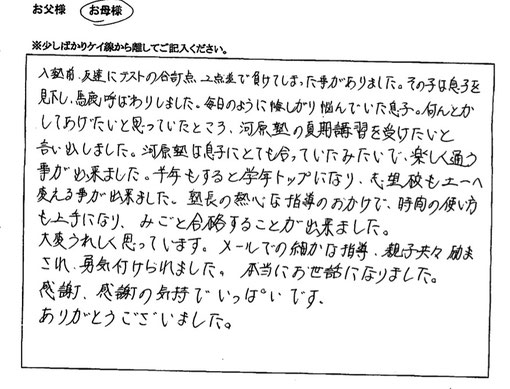 お父様　お母様
※少しばかりケイ線から離してご記入ください。
入塾前、友達にテストの合計点、2点差で負けてしまった事がありました。その子は息子を
見下し、馬鹿呼ばわりしました。毎日のように悔しがり悩んでいた息子。何んとか
してあげたいと思っていたところ、河原塾の夏期講習を受けたいと
言い出しました。河原塾は息子にとても合っていたみたいで、楽しく通う
事が出来ました。半年もすると学年トップになり、志望校も上へ
変える事が出来ました。塾長の熱心な指導のおかげで、時間の使い方
も上手になり、みごと合格することが出来ました。
大変うれしく思っています。メールでの細かな指導、親子共々励ま
され、勇気付けられました。本当にお世話になりました。
感謝、感謝の気持でいっぱいです、
ありがとうございました。